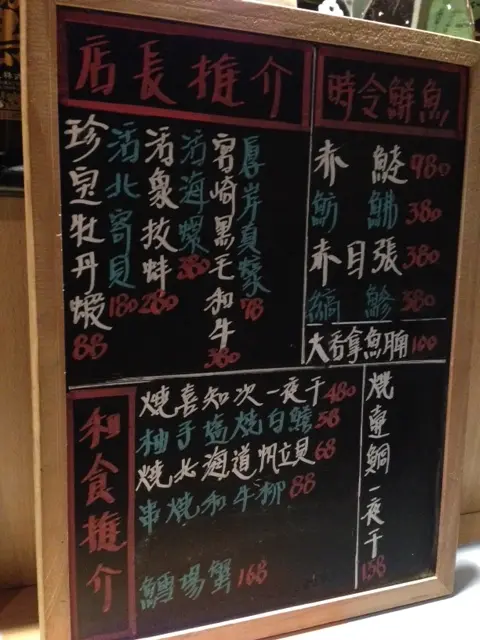 店長推介
厚岸真蠔 78
宮崎黑毛和牛 380
活海螺 380
活象拔蚌 280
活北寄貝 180
珍寶牡丹蝦 88
時令鮮魚
赤鯥 980
魴鮄 380
赤目張 380
縞鰺 380
大吞拿魚腩 100
和食推介
燒喜知次一夜干 480
柚子塩燒白鱔 58
燒北海道帆立貝 68
串燒和牛柳 88
鱈場蟹 168
燒連鯛一夜干 138